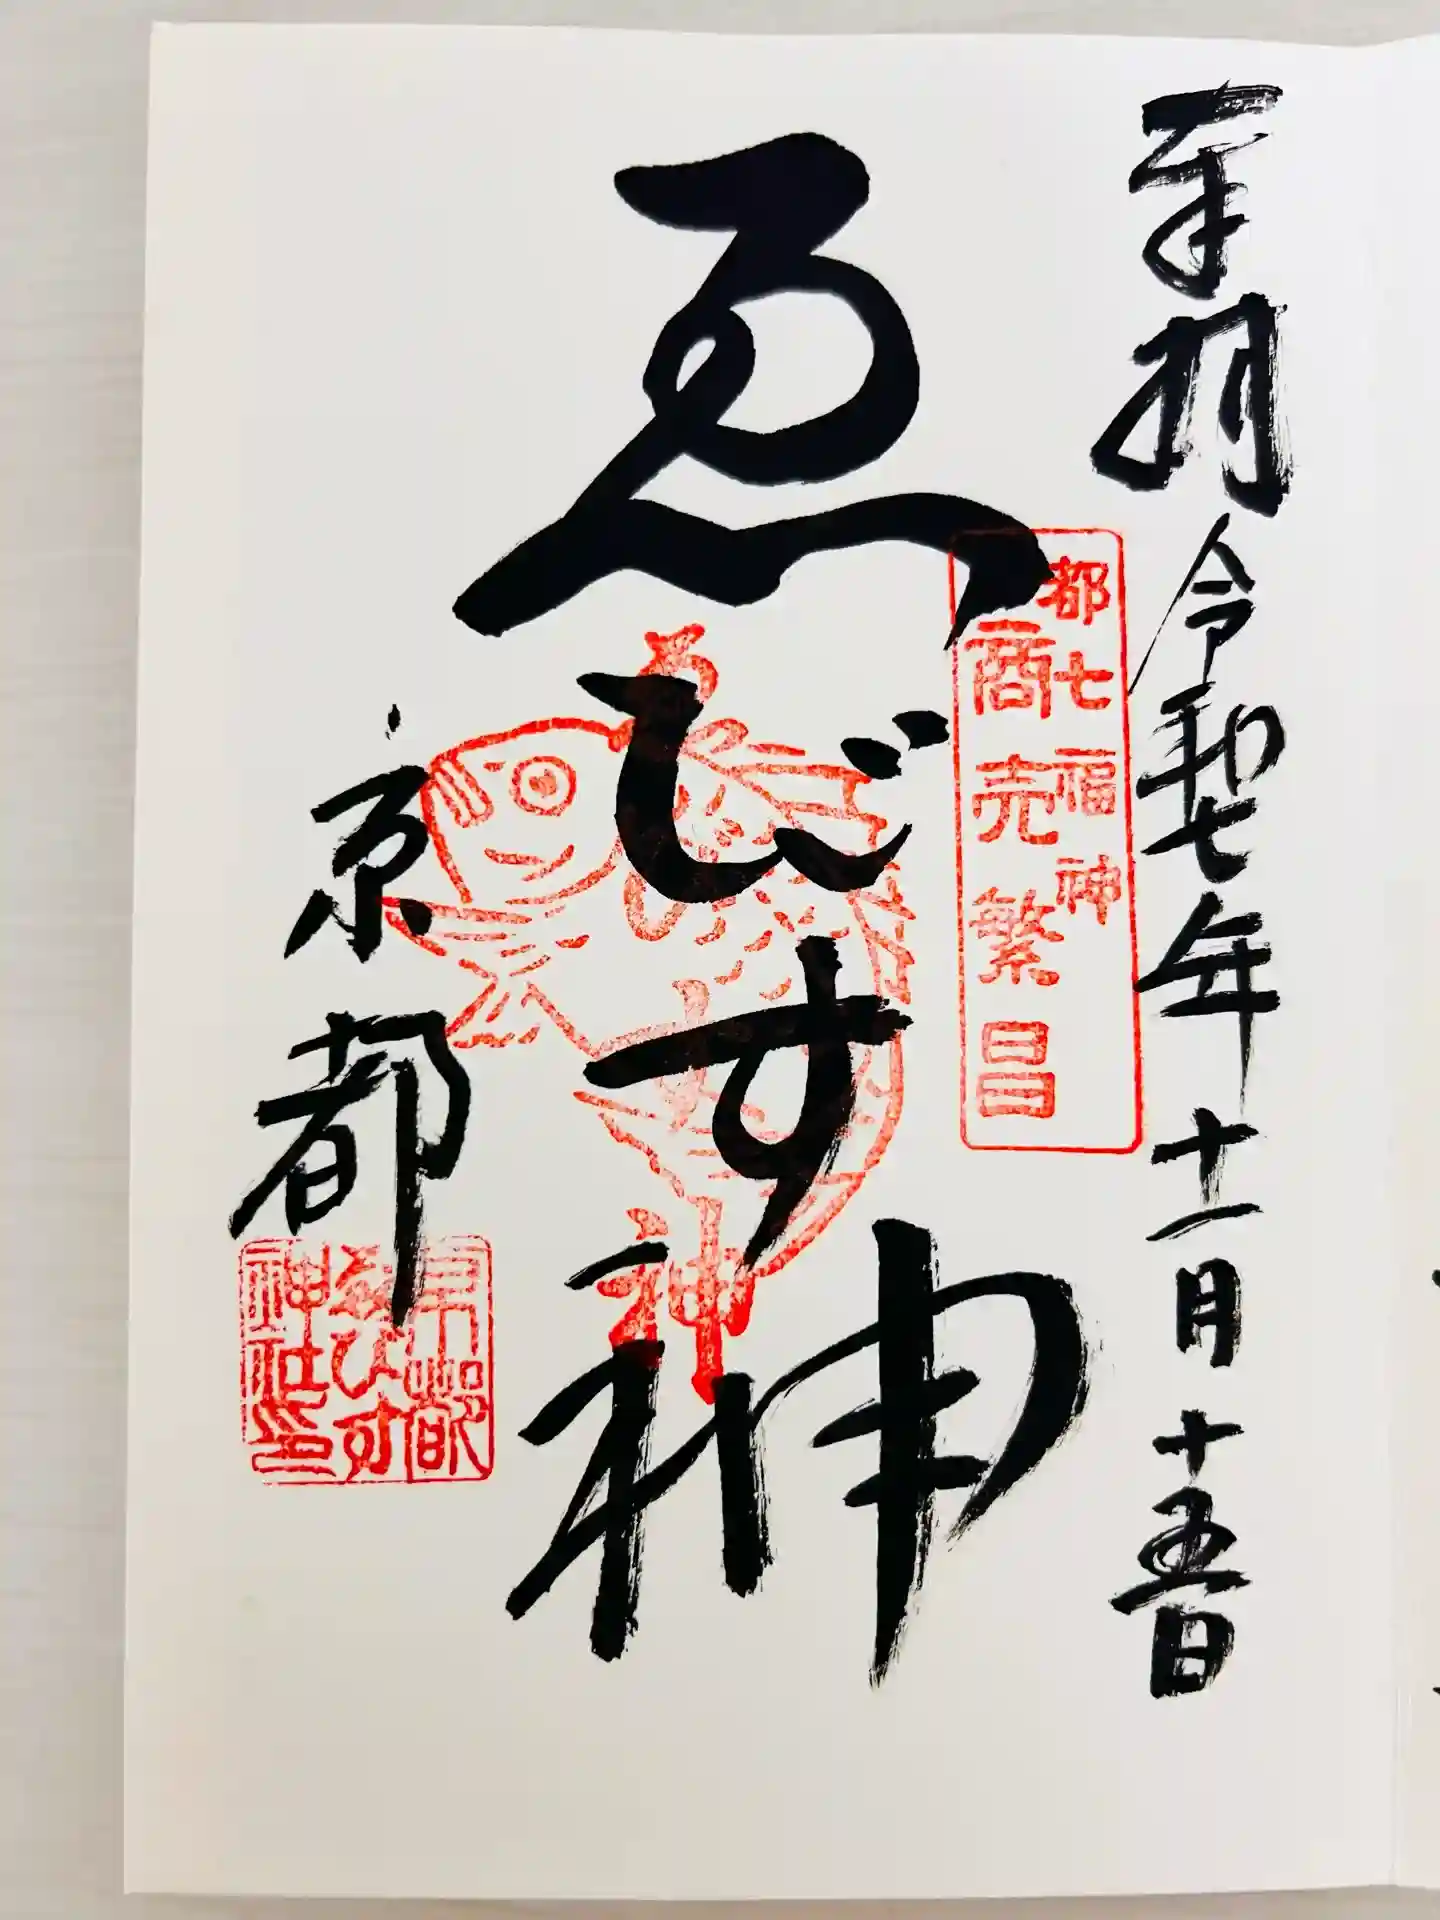 奉拝 令和七年十一月十五日
都七福神
商売繁昌
ゑびす神
ゑびす神
京都
京都
ゑびす
神社印